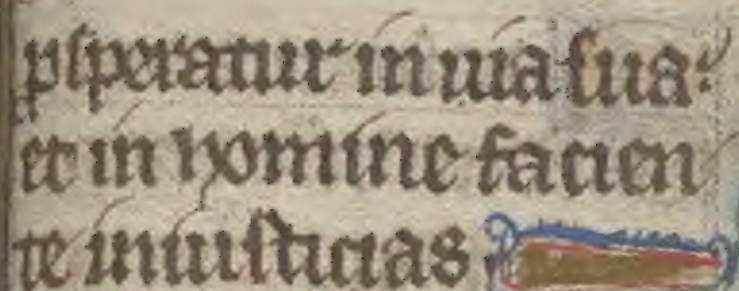 ꝓsperatur in uia sua:
et in homine facien
te iniusticias